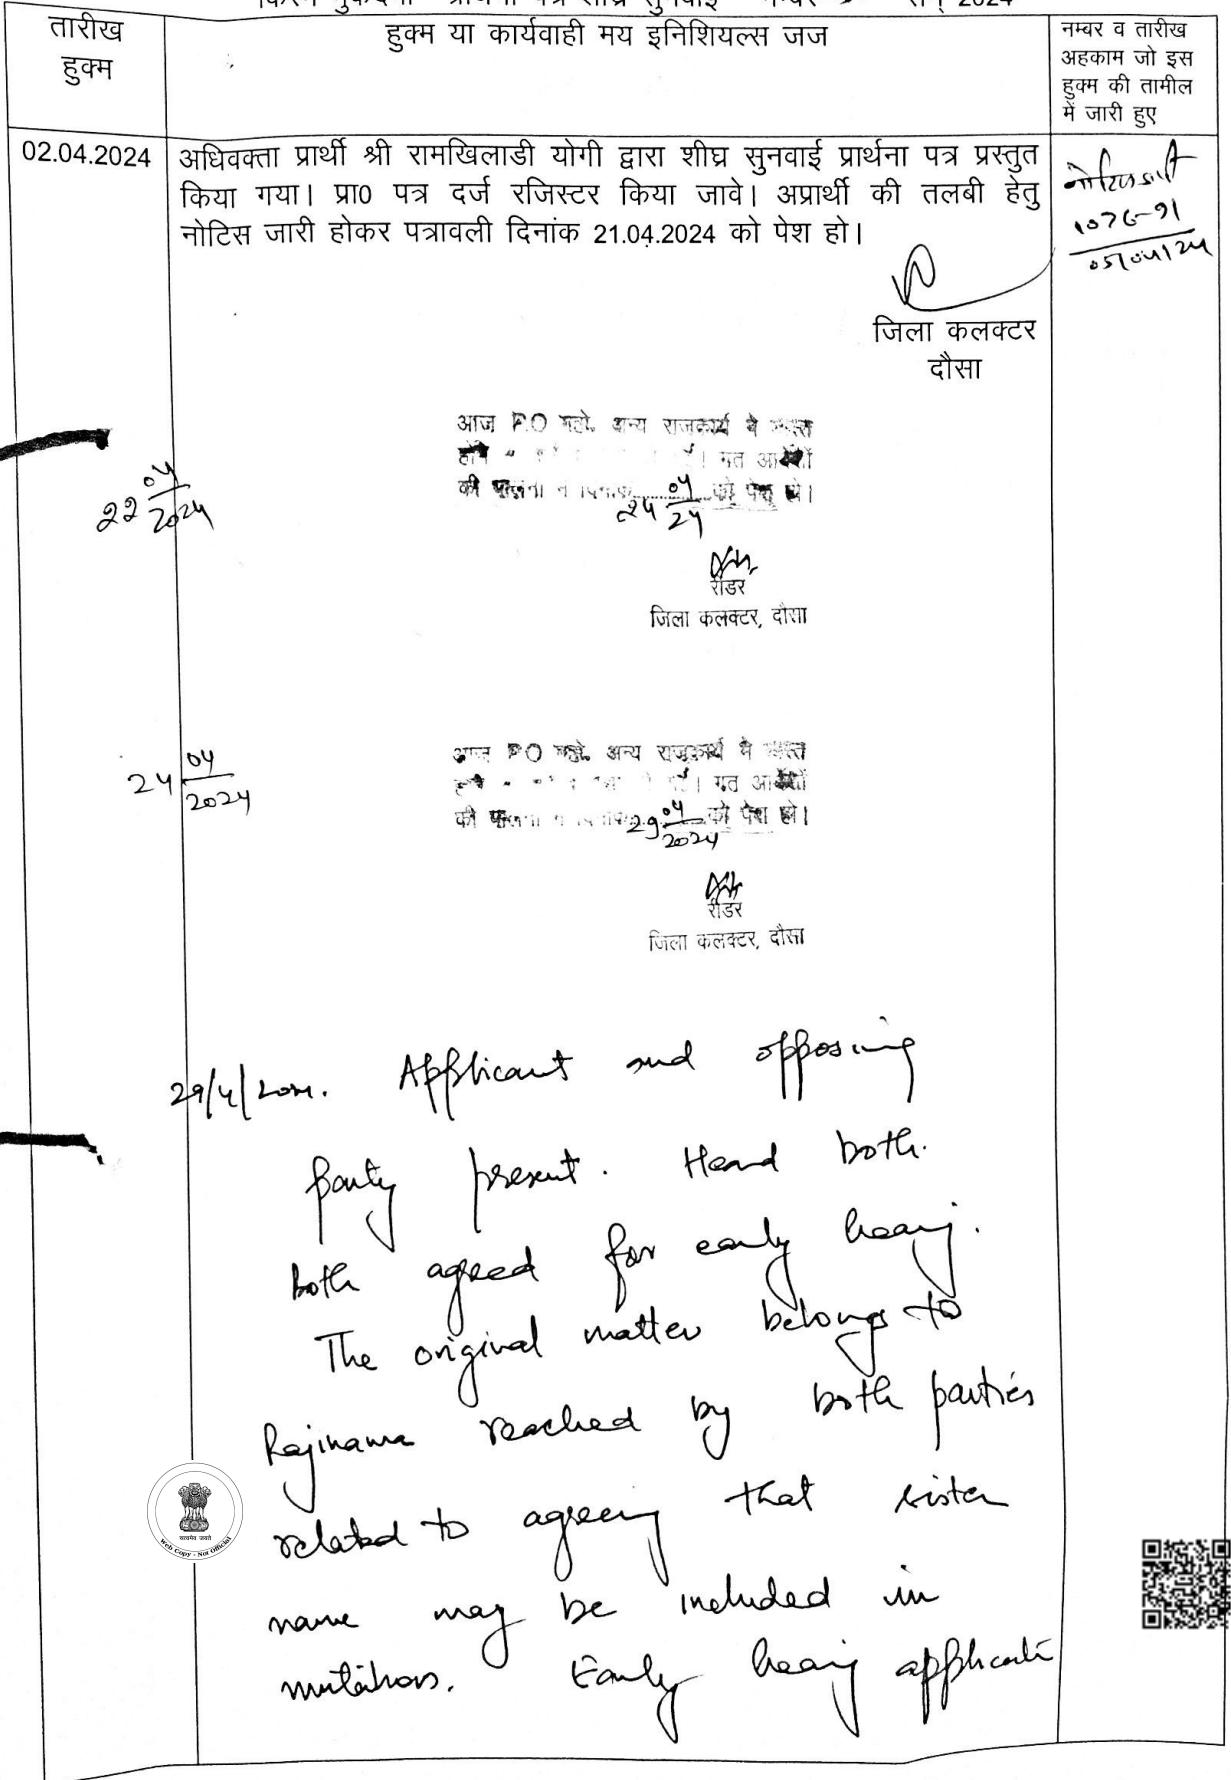 तारीख
हुक्म
हुक्म या कार्यवाही मय इनिशियल्स जज
नम्बर व तारीख
अहकाम जो इस
हुक्म की तामील
में जारी हुए
02.04.2024
अधिवक्ता प्रार्थी श्री रामखिलाडी योगी द्वारा शीघ्र सुनवाई प्रार्थना पत्र प्रस्तुत
किया गया। प्रा0 पत्र दर्ज रजिस्टर किया जावे। अप्रार्थी की तलबी हेतु
नोटिस जारी होकर पत्रावली दिनांक 21.04.2024 को पेश हो।
नोटिस जारी
1076-91
05/04/24
जिला कलक्टर
दौसा
22 04/2024
आज P.O महो. अन्य राजकार्य मे व्यस्त
होने गत आदेशों
की पालना 24 04/24 को पेश हो।
रीडर
जिला कलक्टर, दौसा
24 04/2024
आज P.O महो. अन्य राजकार्य मे व्यस्त
होने गत आदेशों
की पालना 29 04/2024 को पेश हो।
रीडर
जिला कलक्टर, दौसा
29/4/2024. Applicant and opposing
party present. Heard both.
Both agreed for early hearing.
The original matter belongs to
Rajinama reached by both parties
related to agreeing that sister
name may be included in
mutations. Early hearing applicati
सत्यमेव जयते
Web Copy - Not Official